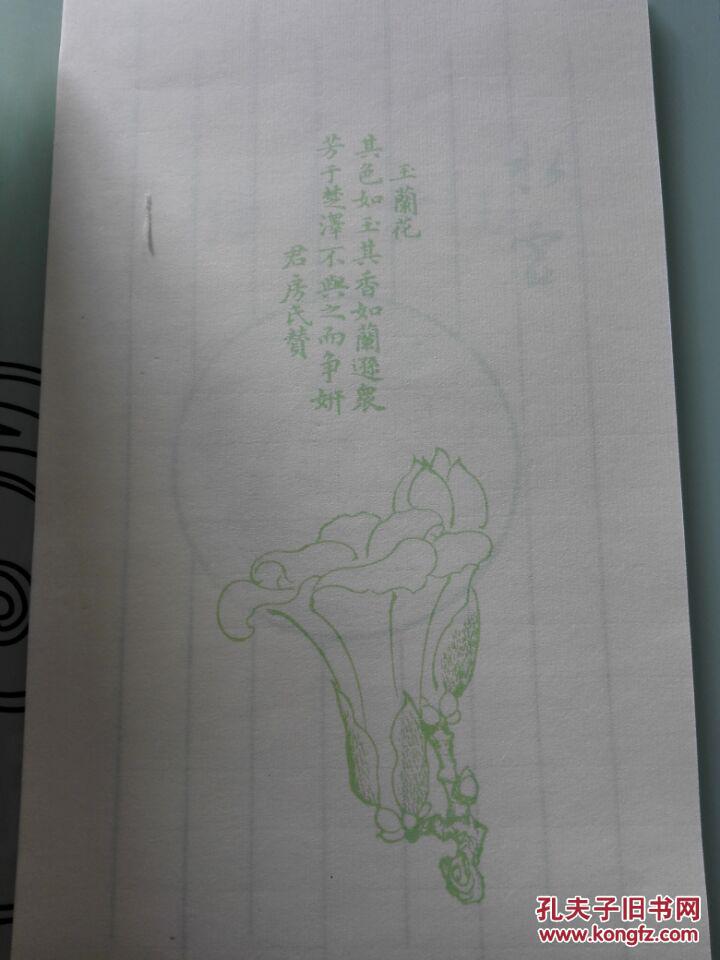 玉蘭花
其色如玉其香如蘭遜衆
芳于楚澤不與之而争妍
君房氏贊
孔夫子旧书网
www.kongfz.com